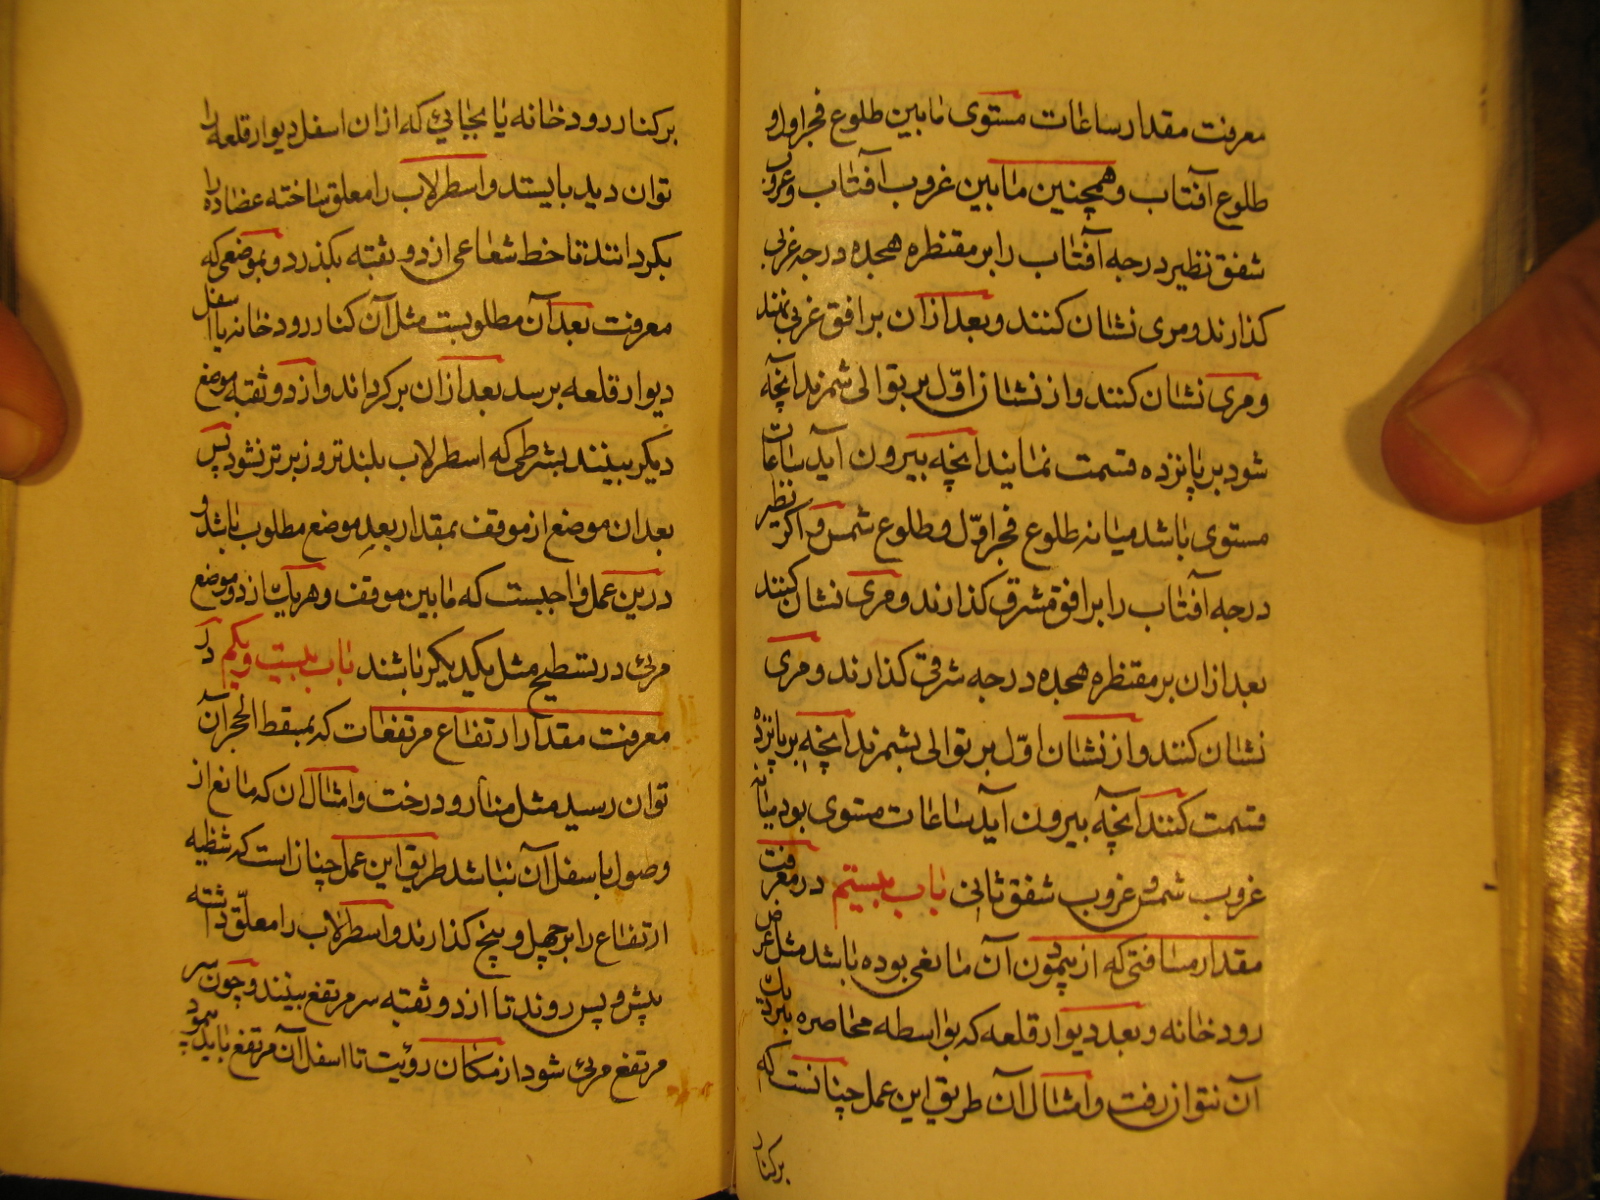 معرفت مقدار ساعات مستوی مابین طلوع فجر اول و
طلوع آفتاب و همچنین مابین غروب آفتاب و غروب
شفق نظیر درجه آفتاب را بر مقنطره هجده درجه غربی
کذارند و مری نشان کنند و بعد از ان بر افق غربی نهند
و مری نشان کنند و از نشان اوّل بر توالی شمرند انچه
شود بر پانزده قسمت نمایند انچه بیرون آید ساعات
مستوی باشد میانه طلوع فجر اوّل و طلوع شمس و اکر نظیر
درجه آفتاب را بر افق مشرق کذارند و مری نشان کنند
بعد از ان بر مقنطره هجده درجه شرقی کذارند و مری
نشان کنند و از نشان اوّل بر توالی بشمرند انچه بر پانزده
قسمت کنند انچه بیرون آید ساعات مستوی بود میانه
غروب شمس و غروب شفق ثانی باب بیستم در معرفت
مقدار مسافتی که از پیمودن آن مانعی بوده باشد مثل عرض
رودخانه و بعد دیوار قلعه که بواسطه محاصره بنزدیک
آن نتوان رفت و امثال آن طریق این عمل چنانست که
برکنار
برکنار رودخانه یا بجائی که از ان اسفل دیوار قلعه را
توان دید بایستد و اسطرلاب را معلق ساخته عضاده را
بکردانند تا خط شعاعی از دو ثقبه بکذرد و بموضعی که
معرفت بعد آن مطلوبست مثل آن کنار رودخانه یا اسفل
دیوار قلعه برسد بعد از ان برکردند و از دو ثقبه موضع
دیکر ببینند بشرطی که اسطرلاب بلندتر و زبرتر نشود پس
بعد ان موضع از موقف بمقدار بعدِ موضع مطلوب باشد و
درین عمل واجبست که مابین موقف و هر یک از دو موضع
مرئی در تسطیح مثل یکدیکر باشند باب بیست و یکم در
معرفت مقدار ارتفاع مرتفعات که بمسقط الحجر آن
توان رسید مثل مناره و درخت و امثال ان که مانع از
وصول باسفل آن نباشد طریق این عمل چنانست که شظیه
ارتفاع را بر چهل و پنج کذارند و اسطرلاب را معلّق داشته
پیش و پس روند تا از دو ثقبه سر مرتفع بینند و چون سر
مرتفع مرئی شود از مکان رؤیت تا اسفل آن مرتفع باید پیمود